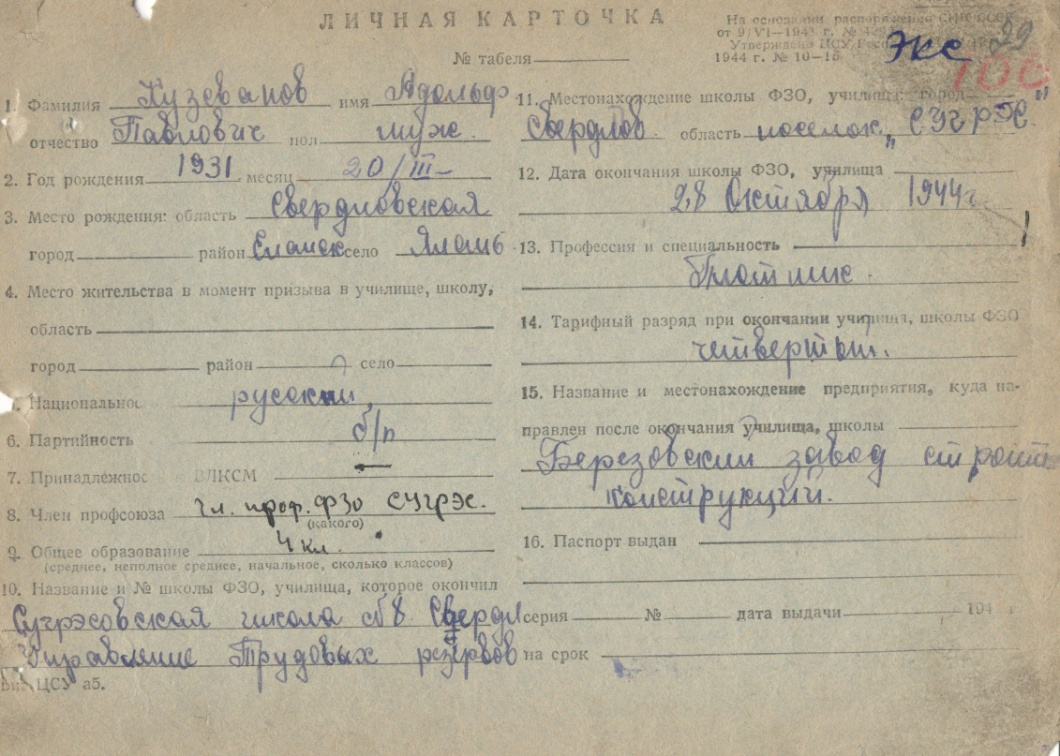 ЛИЧНАЯ КАРТОЧКА
На основании распоряжения СНК СССР
от 9/VI—1943 г. №
Утверждена ЦСУ
1944 г. № 10—15
экс
29
100
№ табеля
1. Фамилия Хузеванов имя Адольф
отчество Павлович пол муж.
2. Год рождения 1931 месяц 20/III—
3. Место рождения: область Свердловская
город район село
4. Место жительства в момент призыва в училище, школу,
область
город район село
Национальнос русский,
6. Партийность б/п
7. Принадлежнос ВЛКСМ —
8. Член профсоюза чл. проф. ФЗО СУГРЭС.
(какого)
9. Общее образование 4 кл.
(среднее, неполное среднее, начальное, сколько классов)
10. Название и № школы ФЗО, училища, которое окончил
Сугрэсовская школа №8 Свердл
Управление Трудовых резервов
ЦСУ а5.
11. Местонахождение школы ФЗО, училища: город
Свердлов. область поселок „СУГРЭС"
12. Дата окончания школы ФЗО, училища
28 Октября 1944г.
13. Профессия и специальность
плотник.
14. Тарифный разряд при окончании училища, школы ФЗО
четвертый.
15. Название и местонахождение предприятия, куда на-
правлен после окончания училища, школы
Березовский завод строит
конструкций.
16. Паспорт выдан
серия № дата выдачи 194
на срок